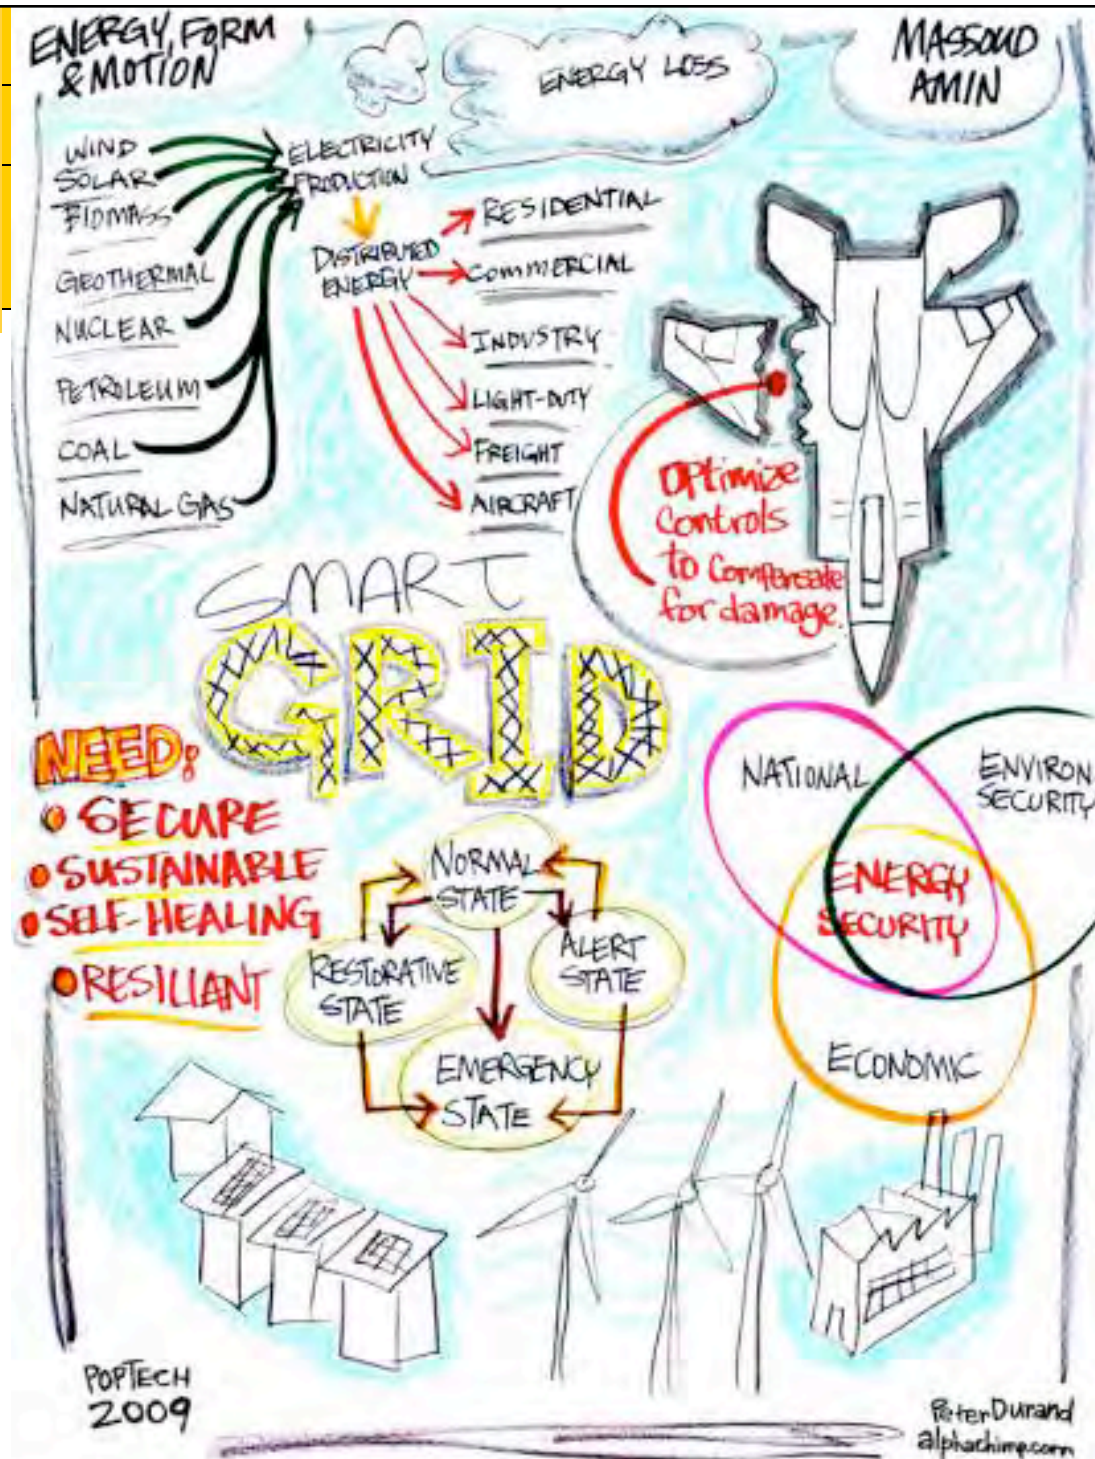 ENERGY, FORM
& MOTION
ENERGY LOSS
MASSOUD
AMIN
WIND
SOLAR
BIOMASS
GEOTHERMAL
NUCLEAR
PETROLEUM
COAL
NATURAL GAS
ELECTRICITY
PRODUCTION
DISTRIBUTED
ENERGY
RESIDENTIAL
COMMERCIAL
INDUSTRY
LIGHT-DUTY
FREIGHT
AIRCRAFT
OPtimize
Controls
to Compensate
for damage.
SMART
GRID
NEED:
SECURE
SUSTAINABLE
SELF-HEALING
RESILIANT
NORMAL
STATE
RESTORATIVE
STATE
ALERT
STATE
EMERGENCY
STATE
NATIONAL
ENVIRON.
SECURITY
ENERGY
SECURITY
ECONOMIC
POPTECH
2009
PeterDurand
alphachimp.com